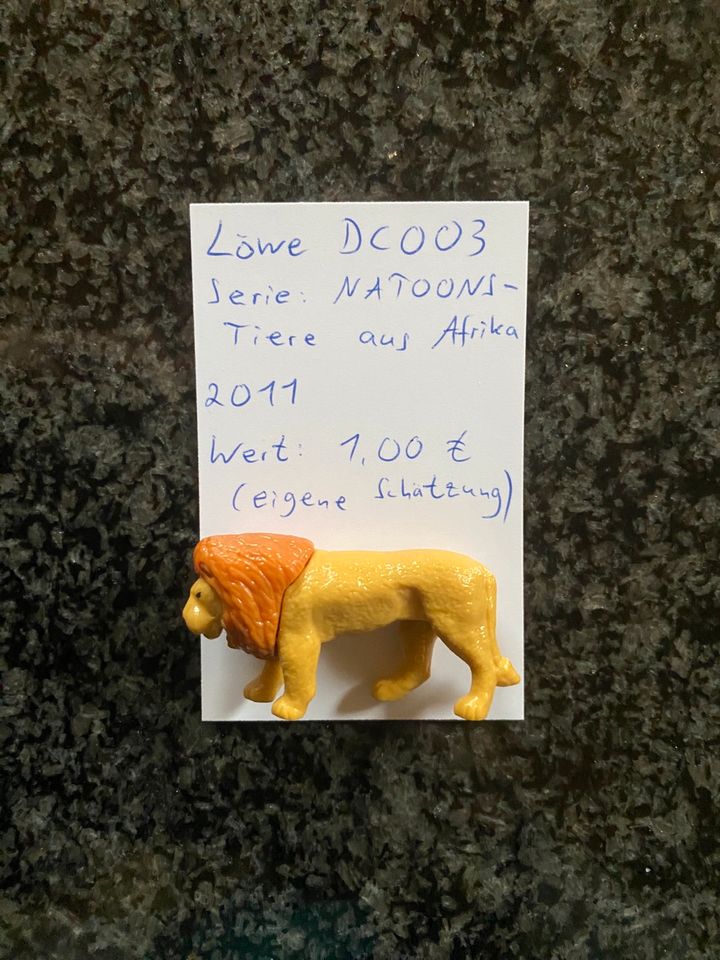 Löwe DC003
Serie: NATOONS-
Tiere aus Afrika
2011
Wert: 1,00 €
(eigene Schätzung)